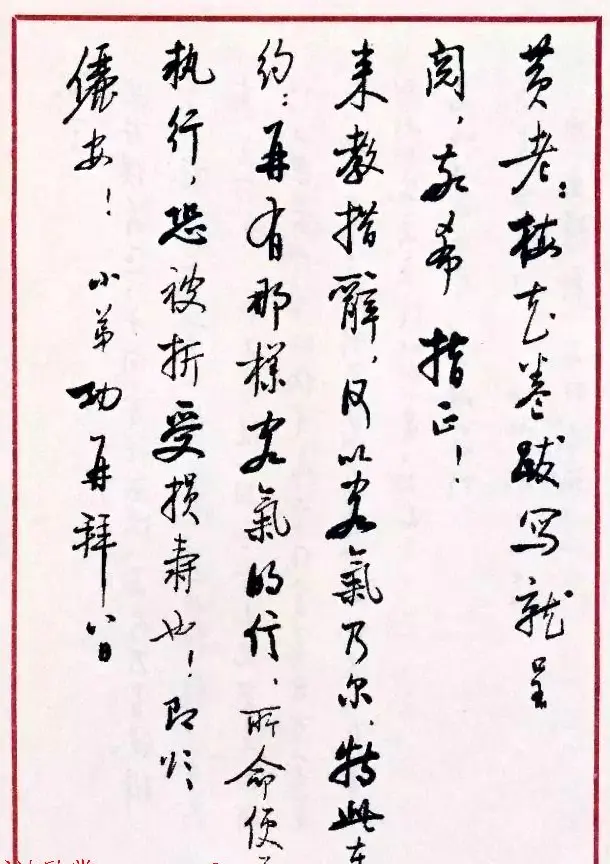 黄老：梅花卷跋写就呈
阅，敬希指正！
来教措辞，何以客氣乃尔，特此
约：再有那樣客氣的信，所命便
执行，恐被折受损寿也！即颂
儷安！　小弟功再拜　八日